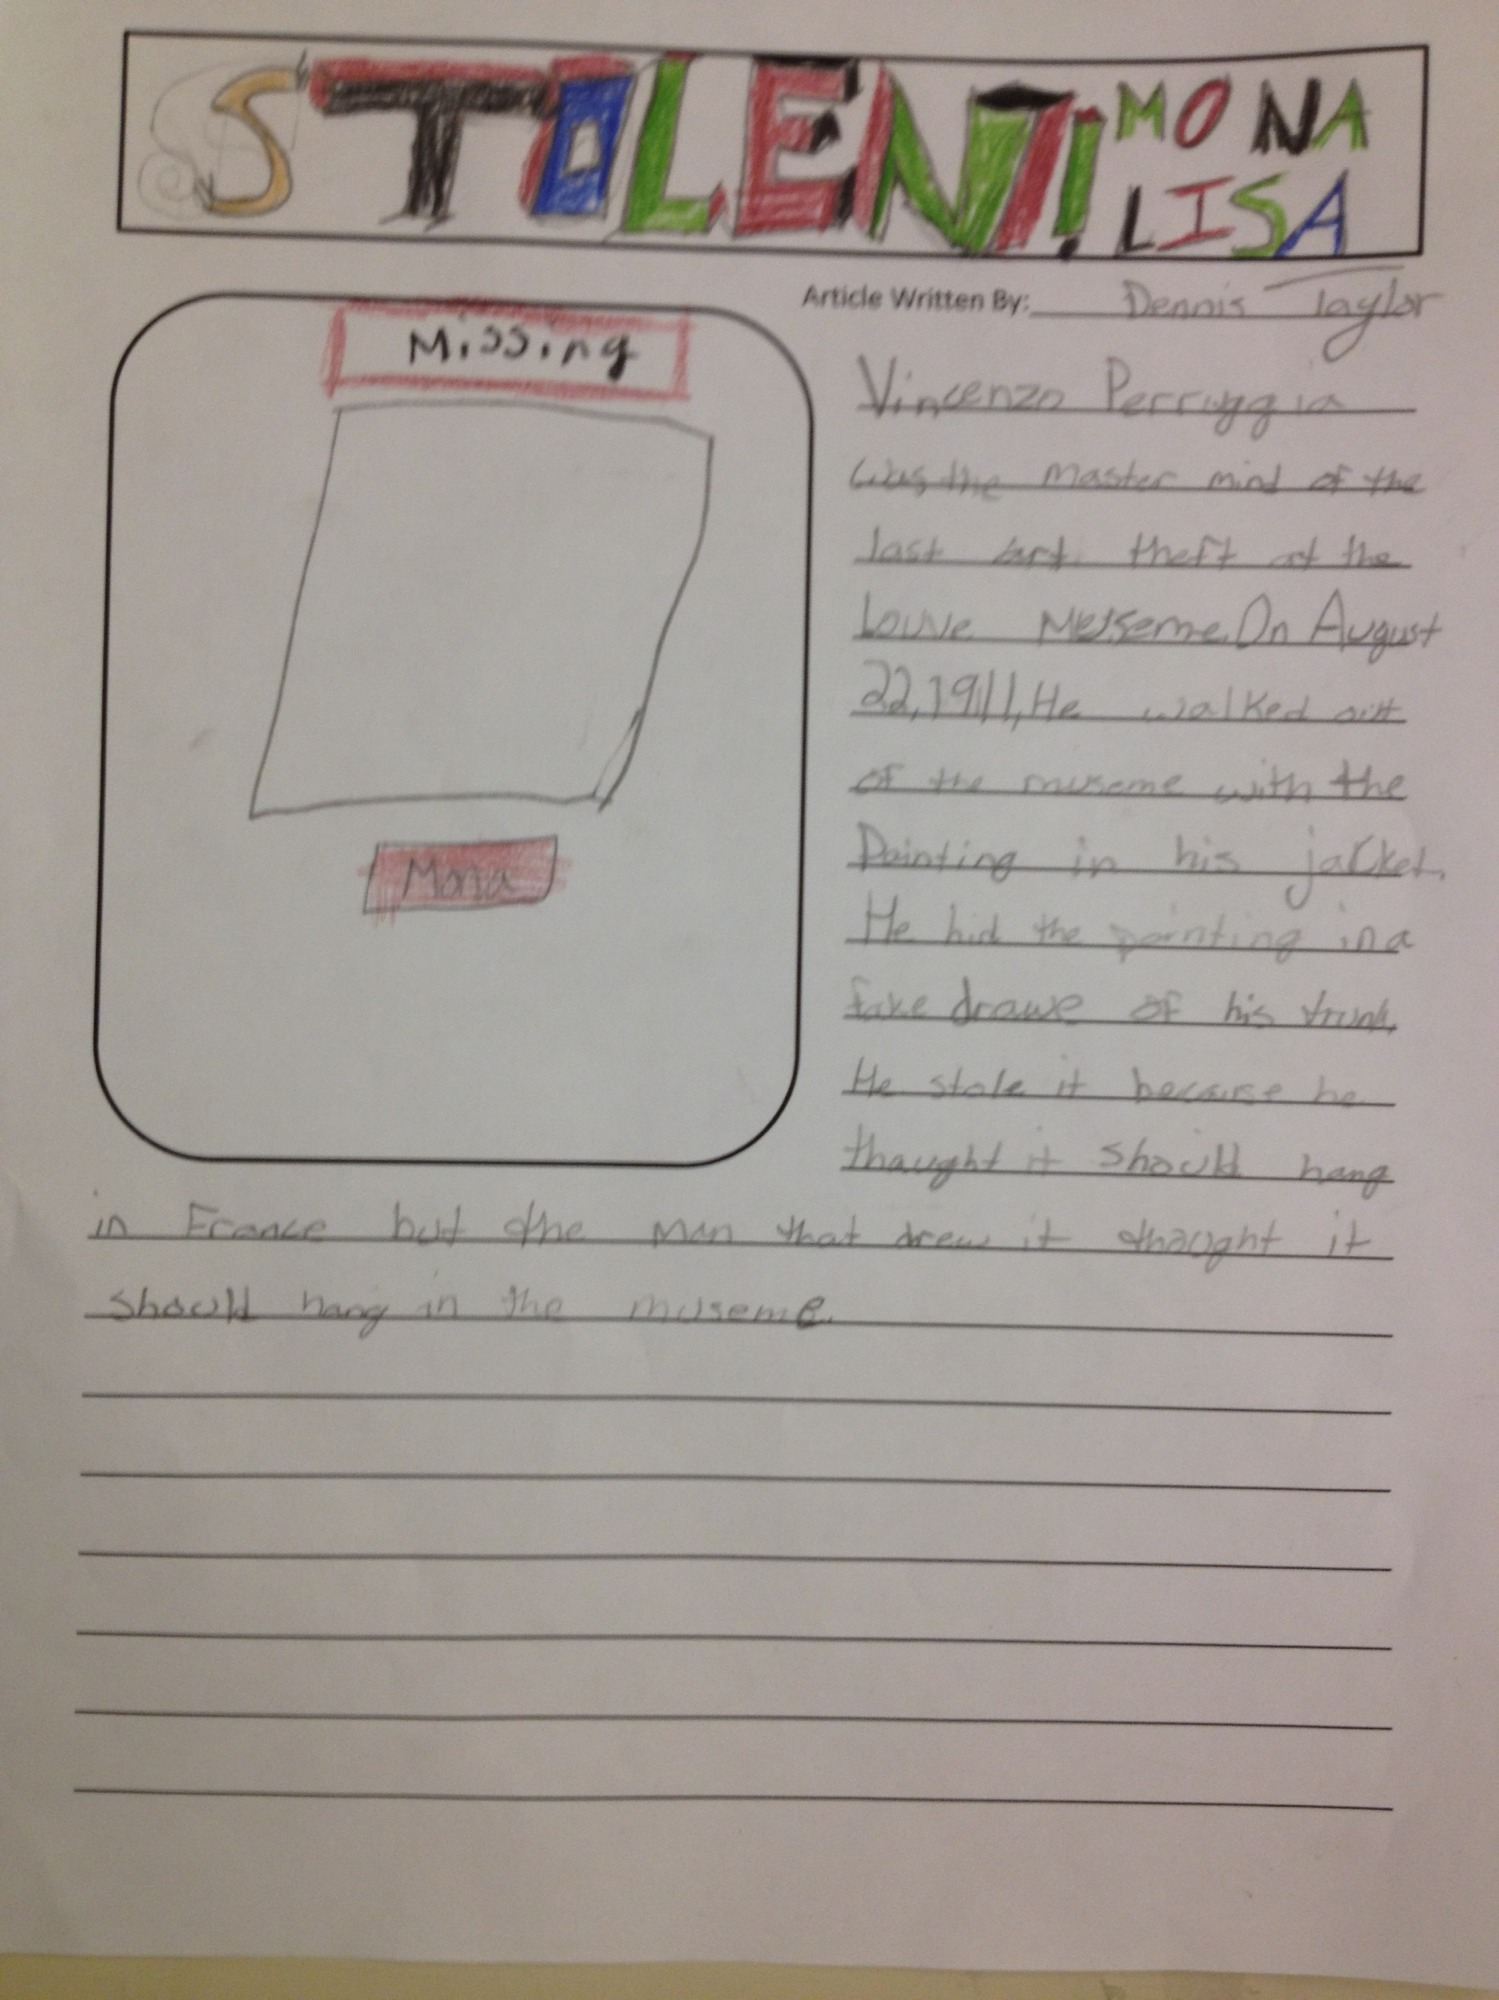 STOLEN! MONA
LISA
Article Written By: Dennis Taylor
Missing
Mona
Vincenzo Perruggia
was the master mind of the
last art theft at the
Louve Meseme. On August
22, 1911, He walked out
of the museme with the
Painting in his jacket.
He hid the painting in a
fake drawe of his trunk.
He stole it because he
thaught it should hang
in France but the man that drew it thaught it
should hang in the museme.